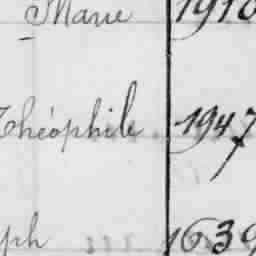 Marie 1910
Théophile 1947
ph 1639